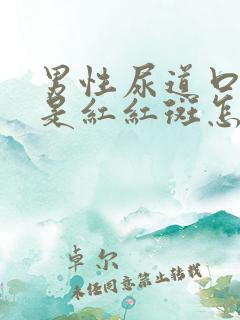 男性尿道口
是红红斑怎
卓尔
未经同意禁止转载